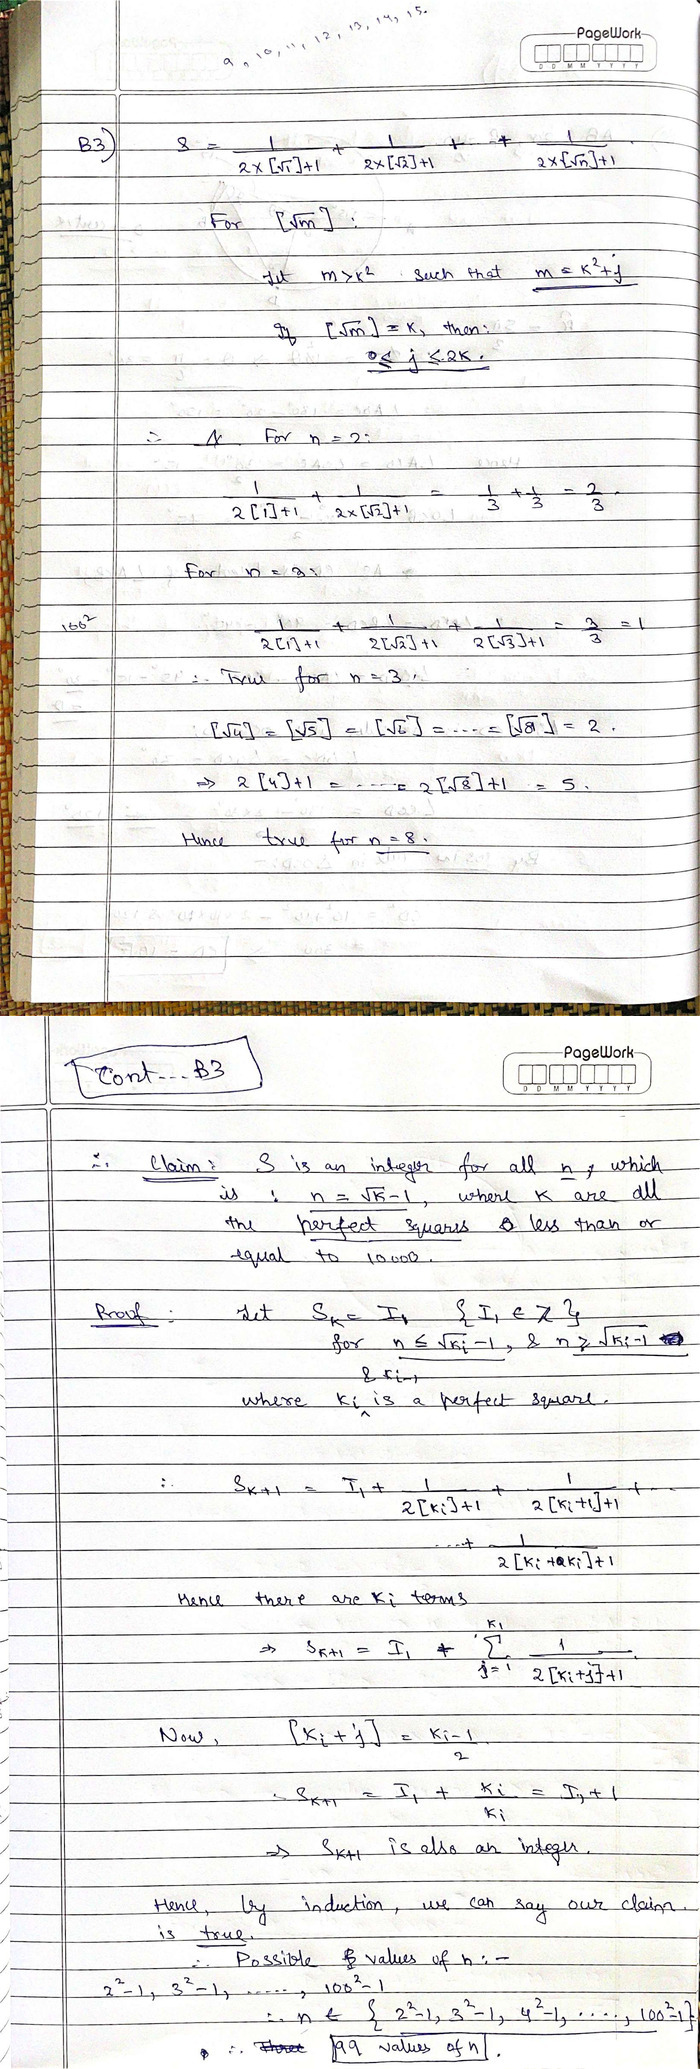 9, 10, 11, 12, 13, 14, 15.
PageWork
D D M M Y Y Y Y
B3) S = 1/(2×[√1]+1) + 1/(2×[√2]+1) + ... + 1/(2×[√n]+1)
For [√m] :
Let m>k² such that m = k²+j
If [√m] = k, then:
0 ≤ j ≤ 2k.
∴ For n = 2:
1/(2[1]+1) + 1/(2×[√2]+1) = 1/3 + 1/3 = 2/3.
For n = 3:
100²
1/(2[1]+1) + 1/(2[√2]+1) + 1/(2[√3]+1) = 3/3 = 1
∴ True for n = 3.
[√4] = [√5] = [√6] = .... = [√8] = 2.
⇒ 2[4]+1 = ..... = 2[√8]+1 = 5.
Hence true for n = 8.
Cont... B3
PageWork
D D M M Y Y Y Y
∴ Claim: S is an integer for all n, which
is : n = √k-1, where k are all
the perfect squares less than or
equal to 10000.
Proof : Let Sₖ = I₁ {I₁ ∈ Z}
for n ≤ √kᵢ-1, & n ≥ √kᵢ-1
& kᵢ₋₁
where kᵢ ^ is a perfect square.
∴ Sₖ₊₁ = I₁ + 1/(2[kᵢ]+1) + 1/(2[kᵢ+1]+1) + ...
...+ 1/(2[kᵢ+2kᵢ]+1)
Hence there are kᵢ terms
⇒ Sₖ₊₁ = I₁ + Σ_{j=1}^{k₁} 1/(2[kᵢ+j]+1)
Now, [kᵢ+j] = (kᵢ-1)/2
∴ Sₖ₊₁ = I₁ + kᵢ/kᵢ = I₁+1
⇒ Sₖ₊₁ is also an integer.
Hence, by induction, we can say our claim
is true.
∴ Possible values of n :-
2²-1, 3²-1, ....., 100²-1
∴ n ∈ {2²-1, 3²-1, 4²-1, ....., 100²-1}
∴ 99 values of n.